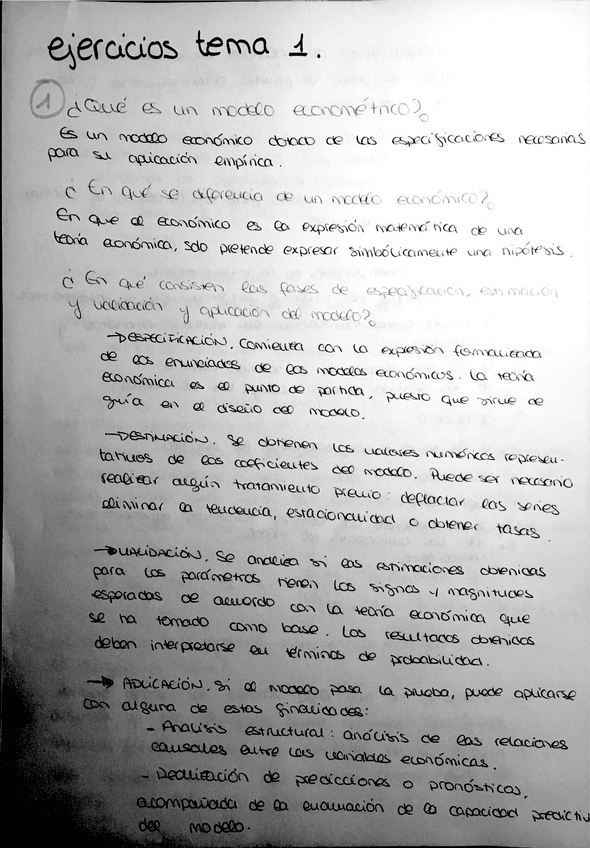 ejercicios tema 1.
1 ¿Qué es un modelo econométrico?
Es un modelo económico dotado de las especificaciones necesarias
para su aplicación empírica.
¿En qué se diferencia de un modelo económico?
En que el económico es la expresión matemática de una
teoría económica, solo pretende expresar simbólicamente una hipótesis.
¿En qué consisten las fases de especificación, estimación
y validación y aplicación del modelo?
→ ESPECIFICACIÓN. Comienza con la expresión formalizada
de los enunciados de los modelos económicos. La teoría
económica es el punto de partida, puesto que sirve de
guía en el diseño del modelo.
→ ESTIMACIÓN. Se obtienen los valores numéricos represen-
tativos de los coeficientes del modelo. Puede ser necesario
realizar algún tratamiento previo: deflactar las series
eliminar la tendencia, estacionalidad o obtener tasas.
→ VALIDACIÓN. Se analiza si las estimaciones obtenidas
para los parámetros tienen los signos y magnitudes
esperadas de acuerdo con la teoría económica que
se ha tomado como base. Los resultados obtenidos
deben interpretarse en términos de probabilidad.
→ APLICACIÓN. Si el modelo pasa la prueba, puede aplicarse
con alguna de estas finalidades:
- Análisis estructural: análisis de las relaciones
causales entre las variables económicas.
- Realización de predicciones o pronósticos,
acompañada de la evaluación de la capacidad predictiv
del modelo.